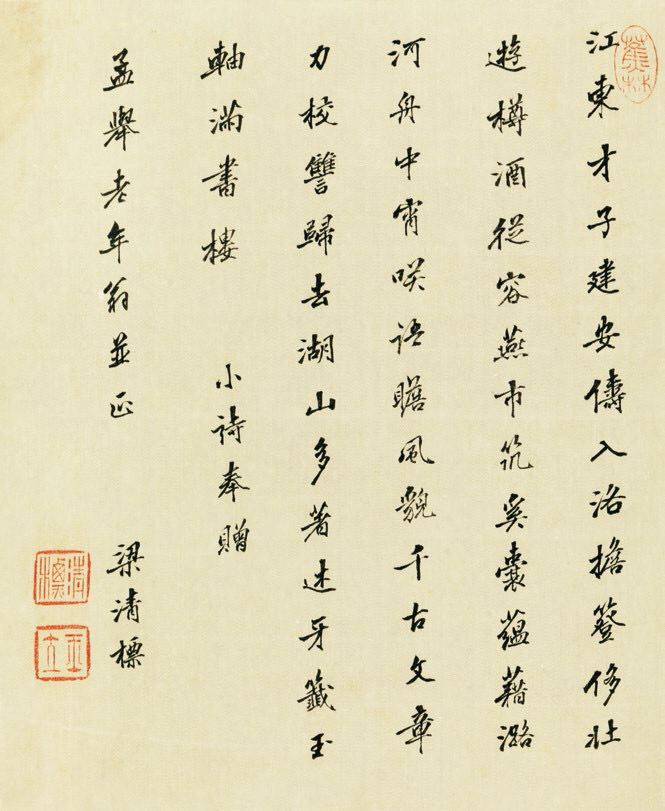 江東才子建安儔入洛擔簦侈壯
遊樽酒從容燕市筑奚囊蘊藉潞
河舟中宵咲語瞻風貌千古文章
力校讐歸去湖山多著述牙籤玉
軸滿書樓　小詩奉贈
孟舉老年翁並正　梁清標
蕉林
清標